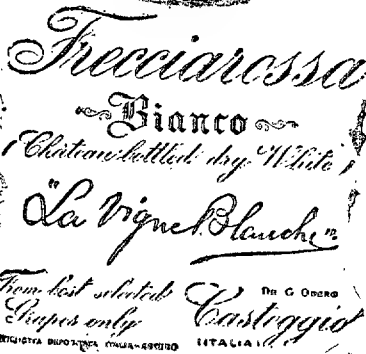 Frecciarossa
Bianco
"Château bottled dry White"
"La Vigne Blanche"
From best selected
Grapes only
Dr G Odero
Casteggio
ITALIA